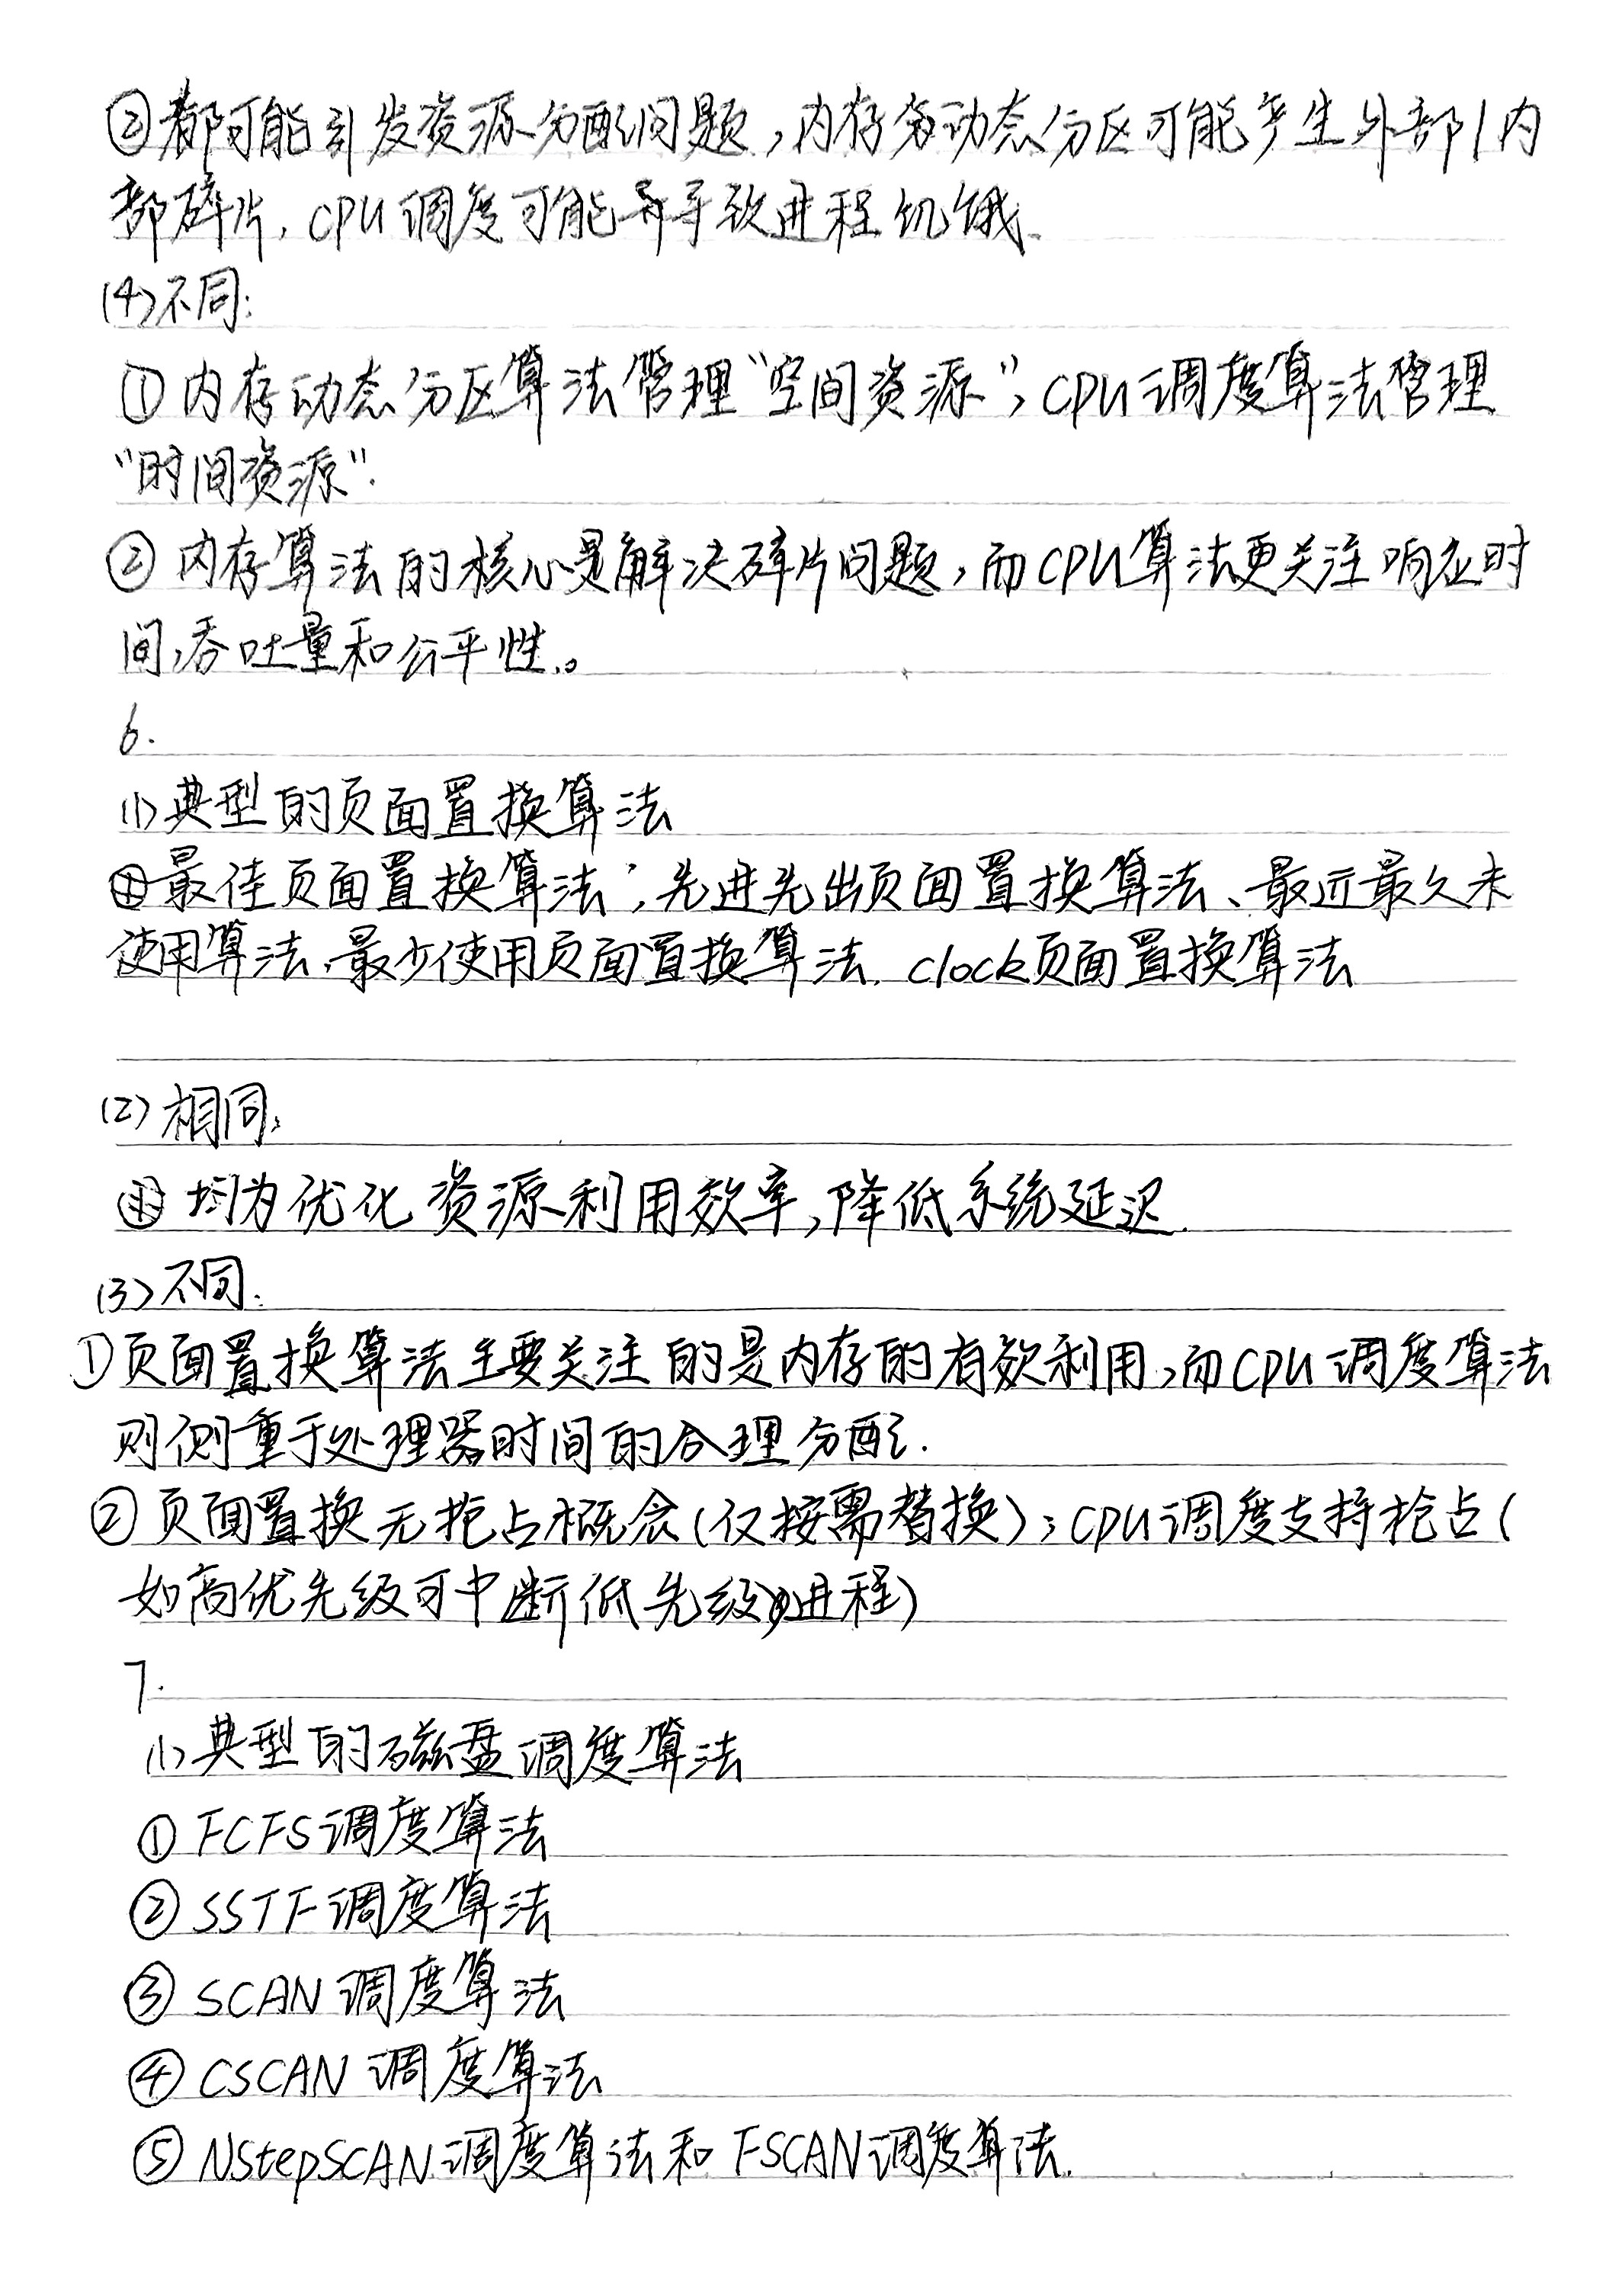 ②都可能引发资源分配问题，内存动态分区可能产生外部/内
部碎片，CPU调度可能导致进程饥饿.
(4)不同：
①内存动态分区算法管理“空间资源”；CPU调度算法管理
“时间资源”.
② 内存算法的核心是解决碎片问题，而CPU算法更关注响应时
间，吞吐量和公平性。
6.
(1)典型的页面置换算法
最佳页面置换算法，先进先出页面置换算法、最近最久未
使用算法、最少使用页面置换算法、clock页面置换算法
(2)相同：
均为优化资源利用效率，降低系统延迟.
(3)不同：
①页面置换算法主要关注的是内存的有效利用，而CPU调度算法
则侧重于处理器时间的合理分配.
②页面置换无抢占概念(仅按需替换)；CPU调度支持抢占(
如高优先级可中断低先级进程)
7.
(1)典型的磁盘调度算法
①FCFS调度算法
②SSTF调度算法
③SCAN调度算法
④CSCAN调度算法
⑤NStepSCAN调度算法和FSCAN调度算法.